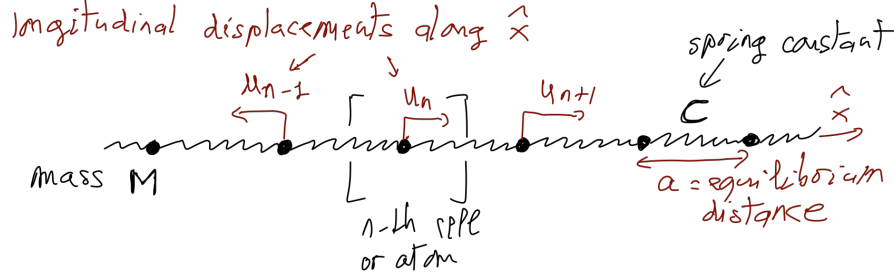 longitudinal displacements along x̂
spring constant
u_{n-1}
u_n
u_{n+1}
C
x̂
mass M
a = equilibrium
distance
n-th cell
or atom